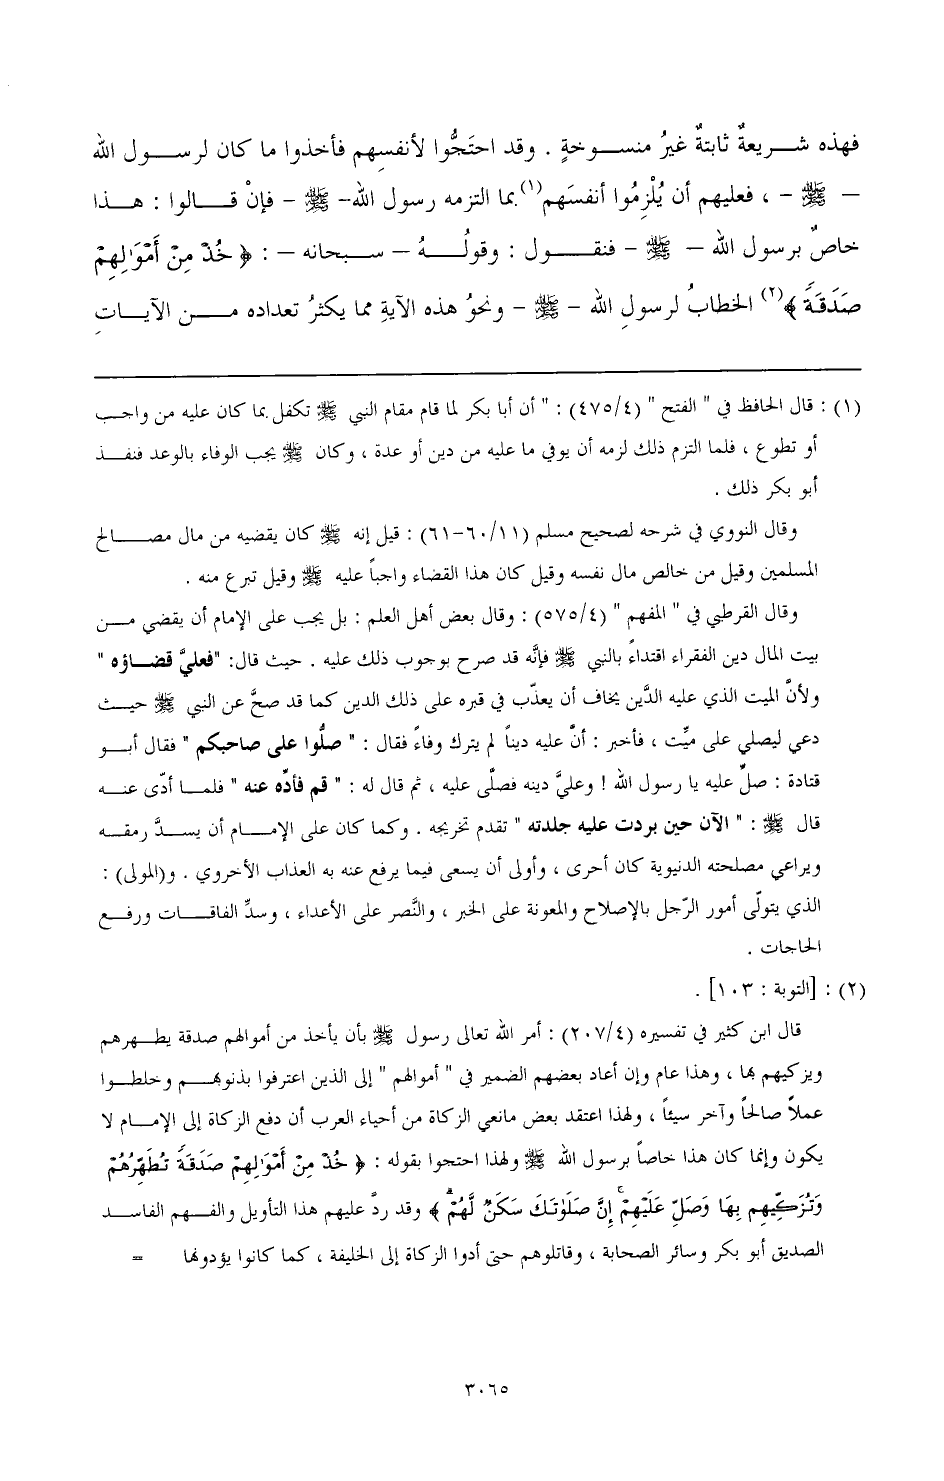 فهذه شريعةٌ ثابتةٌ غيرُ منسوخةٍ . وقد احتَجُّوا لأنفسِهم فأخذوا ما كان لرسول الله
– ﷺ – ، فعليهم أن يُلْزِمُوا أنفسَهم(١) بما التزمه رسول الله- ﷺ – فإنْ قالوا : هذا
خاصٌ برسول الله – ﷺ – فنقول : وقولُهُ – سبحانه – : ﴿ خُذْ مِنْ أَمْوَٰلِهِمْ
صَدَقَةً ﴾(٢) الخطابُ لرسولِ الله – ﷺ – ونحوُ هذه الآيةِ مما يكثرُ تعداده من الآيات
(١) : قال الحافظ في " الفتح " (٤٧٥/٤) : " أن أبا بكر لما قام مقام النبي ﷺ تكفل بما كان عليه من واجب
أو تطوع ، فلما التزم ذلك لزمه أن يوفي ما عليه من دين أو عدة ، وكان ﷺ يجب الوفاء بالوعد فنفذ
أبو بكر ذلك .
وقال النووي في شرحه لصحيح مسلم (٦٠/١١-٦١) : قيل إنه ﷺ كان يقضيه من مال مصالح
المسلمين وقيل من خالص مال نفسه وقيل كان هذا القضاء واجباً عليه ﷺ وقيل تبرع منه .
وقال القرطبي في " المفهم " (٥٧٥/٤) : وقال بعض أهل العلم : بل يجب على الإمام أن يقضي من
بيت المال دين الفقراء اقتداءً بالنبي ﷺ فإنَّه قد صرح بوجوب ذلك عليه . حيث قال: "فعليَّ قضاؤه "
ولأنَّ الميت الذي عليه الدَّين يخاف أن يعذّب في قبره على ذلك الدين كما قد صحَّ عن النبي ﷺ حيث
دعي ليصلي على ميِّت ، فأخبر : أنَّ عليه ديناً لم يترك وفاءً فقال : " صلُّوا على صاحبكم " فقال أبو
قتادة : صلِّ عليه يا رسول الله ! وعليَّ دينه فصلَّى عليه ، ثم قال له : " قم فأدِّه عنه " فلما أدّى عنه
قال ﷺ : " الآن حين بردت عليه جلدته " تقدم تخريجه . وكما كان على الإمام أن يسدَّ رمقه
ويراعي مصلحته الدنيوية كان أحرى ، وأولى أن يسعى فيما يرفع عنه به العذاب الأخروي . و(المولى) :
الذي يتولّى أمور الرّجل بالإصلاح والمعونة على الخير ، والنَّصر على الأعداء ، وسدِّ الفاقات ورفع
الحاجات .
(٢) : [التوبة : ١٠٣] .
قال ابن كثير في تفسيره (٢٠٧/٤) : أمر الله تعالى رسول ﷺ بأن يأخذ من أموالهم صدقة يطهرهم
ويزكيهم بها ، وهذا عام وإن أعاد بعضهم الضمير في " أموالهم " إلى الذين اعترفوا بذنوبهم وخلطوا
عملاً صالحاً وآخر سيئاً ، ولهذا اعتقد بعض مانعي الزكاة من أحياء العرب أن دفع الزكاة إلى الإمام لا
يكون وإنما كان هذا خاصاً برسول الله ﷺ ولهذا احتجوا بقوله : ﴿ خُذْ مِنْ أَمْوَٰلِهِمْ صَدَقَةً تُطَهِّرُهُمْ
وَتُزَكِّيهِم بِهَا وَصَلِّ عَلَيْهِمْ ۖ إِنَّ صَلَوٰتَكَ سَكَنٌ لَّهُمْ ۗ ﴾ وقد ردَّ عليهم هذا التأويل والفهم الفاسد
الصديق أبو بكر وسائر الصحابة ، وقاتلوهم حتى أدوا الزكاة إلى الخليفة ، كما كانوا يؤدونها =
٣٠٦٥